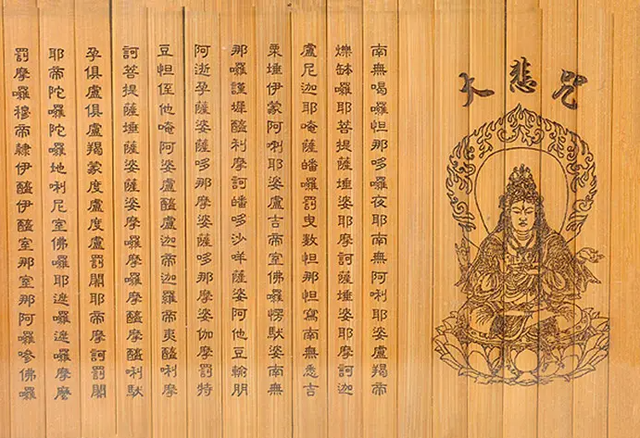 大悲咒
南無喝囉怛那哆囉夜耶南無阿利耶婆盧羯帝
爍缽囉耶菩提薩埵婆耶摩訶薩埵婆耶摩訶迦
盧尼迦耶唵薩皤囉罰曳數怛那怛寫南無悉吉
栗埵伊蒙阿利耶婆盧吉帝室佛囉愣馱婆南無
那囉謹墀醯利摩訶皤哆沙咩薩婆阿他豆輸朋
阿逝孕薩婆薩哆那摩婆薩哆那摩婆伽摩罰特
豆怛侄他唵阿婆盧醯盧迦帝迦羅帝夷醯唎摩
訶菩提薩埵薩婆薩婆摩囉摩囉摩醯摩醯唎馱
孕俱盧俱盧羯蒙度盧度盧罰闍耶帝摩訶罰闍
耶帝陀囉陀囉地利尼室佛囉耶遮囉遮囉摩麼
罰摩囉穆帝隸伊醯伊醯室那室那阿囉嘇佛囉